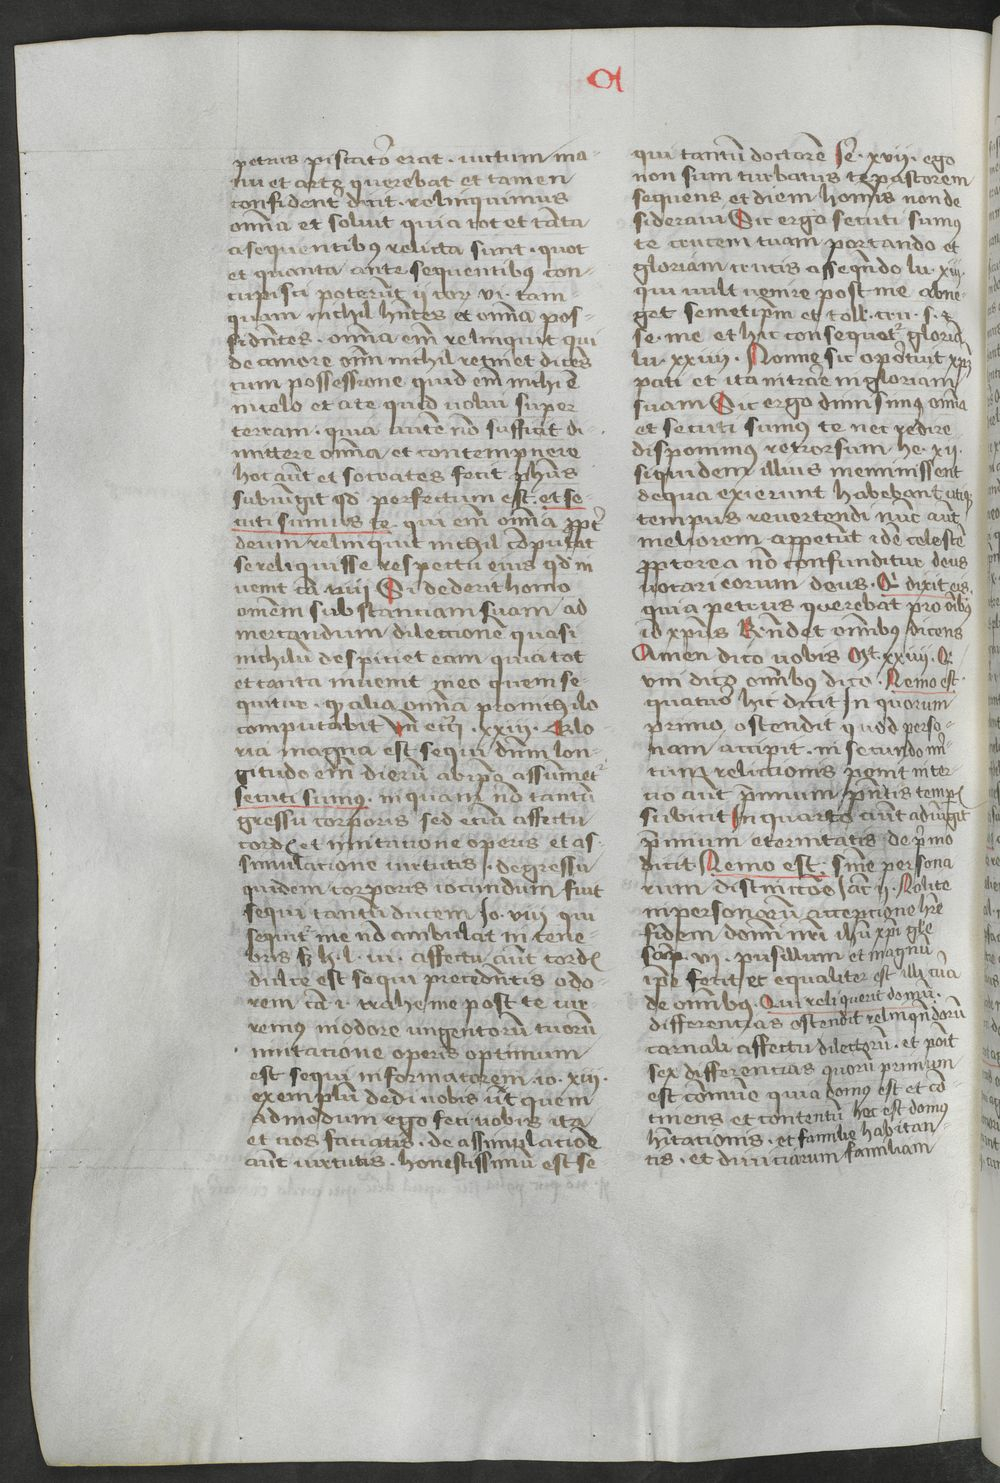 petrus piscator erat · uictum ma-
nu et arte querebat et tamen
confident' dicit · relinquimus
om̄ia et soluit quia tot et tāta
a sequentibꝰ relicta sunt · quot
et quanta ante sequentibꝰ con-
cupisci poterūt ij cor vi · tam
quam nichil hn̄tes et om̄ia pos-
sidentes · om̄ia em̄ relinquit qui
de amore om̄i nichil retinet dices
cum possessione quid em̄ michi ē
in celo et a te quid uolui super
terram · quia autē nō sufficit di-
mittere om̄ia et contempnere
hoc aūt et socrates fecit ph̄us
subiūgit qd perfectum est · et se-
cuti sumus te · qui em̄ om̄ia ꝓpt'
deum relinquit nichil cōputat
se reliquisse respectu eius qd in
uenit cā viij Si dederit homo
om̄em substanciam suam ad
mercandum dilectionē quasi
nichilū despiciet eam quia tot
et tanta inuenit in eo quem se-
quitur · ꝙ alia om̄ia pro nichilo
computabit Vn̄ eccī · xxiij · Glo-
ria magna est sequi dn̄m lon-
gitudo em̄ dierū ab ip̄o assumet'
secuti sumꝰ · inquam nō tantū
gressu corporis sed eciā affectu
cordis et imitatione operis et as-
similatione uirtutis · de gressu
quidem corporis iocundum fuit
sequi tantū ducem Jo · viij qui
sequit' me nō ambulat in tene-
bris affectu aūt cordis
dulce est sequi precedētis odo-
rem cā i · trahe me post te cur-
remus in odore ungentorū tuorū
imitacione operis optimum
est sequi informatorem io · xiij ·
exemplū dedi uobis ut quem
admodum ego feci uobis ita
et uos faciatis · de assimilacioē
aūt uirtutis · honestissimū est se-
qui tantū doctorē Je · xvij · ego
non sum turbatus te pastorem
sequens et diem hoīnis non de
sideraui Sic ergo secuti sumus
te crucem tuam portando et
gloriam crucis assequēdo lu · xiiij
qui uult uenire post me abne-
get semetip̄m et toll · cru · s · &
se · me et hic consequet' gloriam
lu · xxiiij · Nonne sic oportuit xp̄m
pati et ita intrare in gloriam
suam Sic ergo dimisimꝰ om̄ia
et secuti sumus te nec redire
disponimus retrorsum he · xij ·
siquidem illius meminissent
de qua exierunt habebant utiqꝫ
tempus revertendi nūc aūt
meliorem appetūt idē celestē
ꝓpterea nō confunditur deus
uocari eorum deus · Qī dixit eis
quia petrus querebat pro om̄ibꝰ
iō xp̄us Rn̄det om̄ibus dicens
Amen dico uobis Mt · xxiiij · Qd
vni dico om̄ibus dico · Nemo est
quatuor hic dicit In quorum
primo ostendit quod perso-
nam accipit · in secundo
relictionis ponit in ter-
cio aūt p̄mium p̄ntis tempis
subicit In quarto aūt adiūgit
p̄mium eternitatis de p̄mo
dicit Nemo est sine persona
rum distinctōe Jac ij · Nolite
in personarū acceptione hr̄e
fidem domi nr̄i ih̄u xp̄i gl̄e
Sap · vi · pusillum et magnū
ip̄e fecit et equaliter est illi cura
de om̄ibus · Qui reliquerit domū ·
differencias ostendit relinquēdorū
carnali affectu dilectorū · et ponit
sex differencias quorū primum
est cōmune quia domus est et cō-
tinens et contentū hec est domus
hītationis · et familie habitan-
tis · et diuiciarum familiam